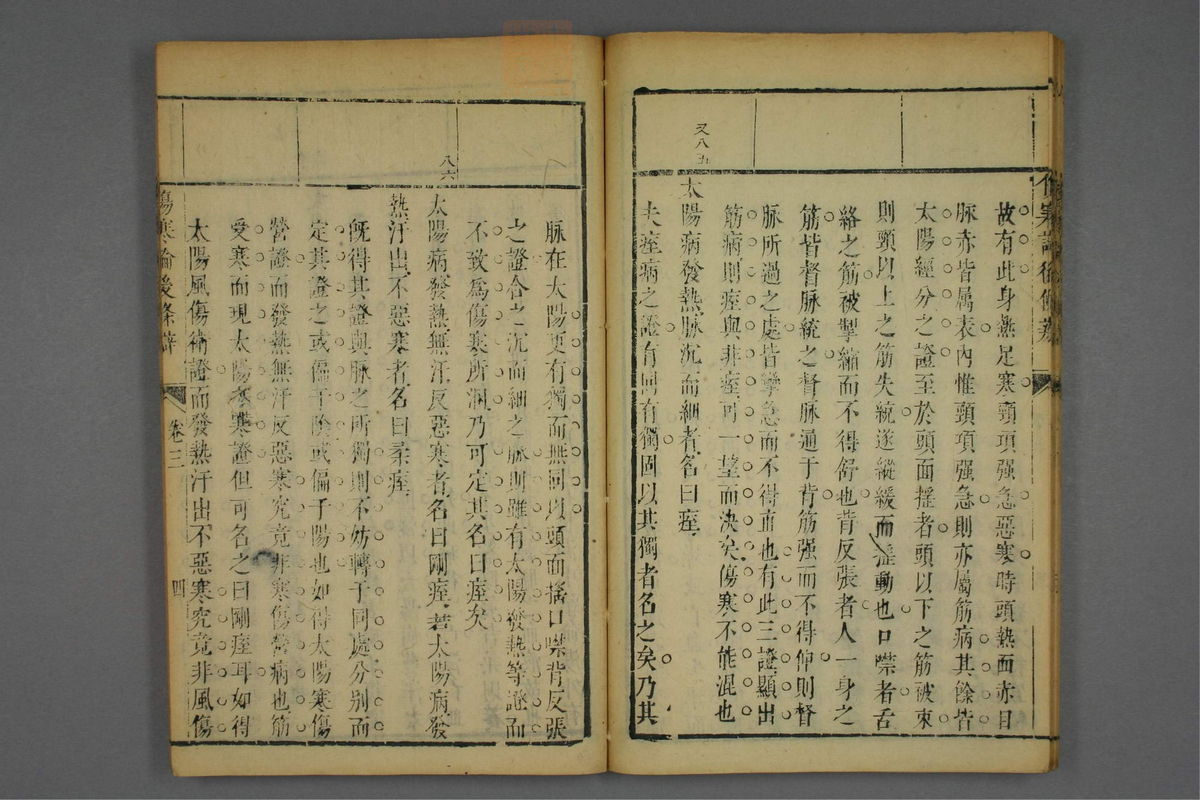 故有此身熱足寒頸項强急惡寒時頭熱面赤目
脉赤皆屬表內惟頸項强急則亦屬筋病其餘皆
太陽經分之證至於頭面搖者頭以下之筋被束
則頸以上之筋失統遂縱緩而動也口噤者舌
絡之筋被掣縮而不得舒也背反張者人一身之
筋皆督脉統之督脉通于背筋强而不得伸則督
脉所過之處皆攣急而不得直也有此三證顯出
筋病則痓與非痓可一望而決矣傷寒不能混也
又八五
太陽病發熱脉沉而細者名曰痓
夫痓病之證有同有獨固以其獨者名之矣乃其
脉在太陽更有獨而無同以頭面搖口噤背反張
之證合之沉而細之脉則雖有太陽發熱等證而
不致爲傷寒所溷乃可定其名曰痓矣
八六
太陽病發熱無汗反惡寒者名曰剛痓若太陽病發
熱汗出不惡寒者名曰柔痓
旣得其證與脉之所獨則不妨轉于同處分别而
定其證之或偏于陰或偏于陽也如得太陽寒傷
營證而發熱無汗反惡寒究竟非寒傷營病也筋
受寒而現太陽寒證但可名之曰剛痓耳如得
太陽風傷衛證而發熱汗出不惡寒究竟非風傷
傷寒論後條辨
卷三
四